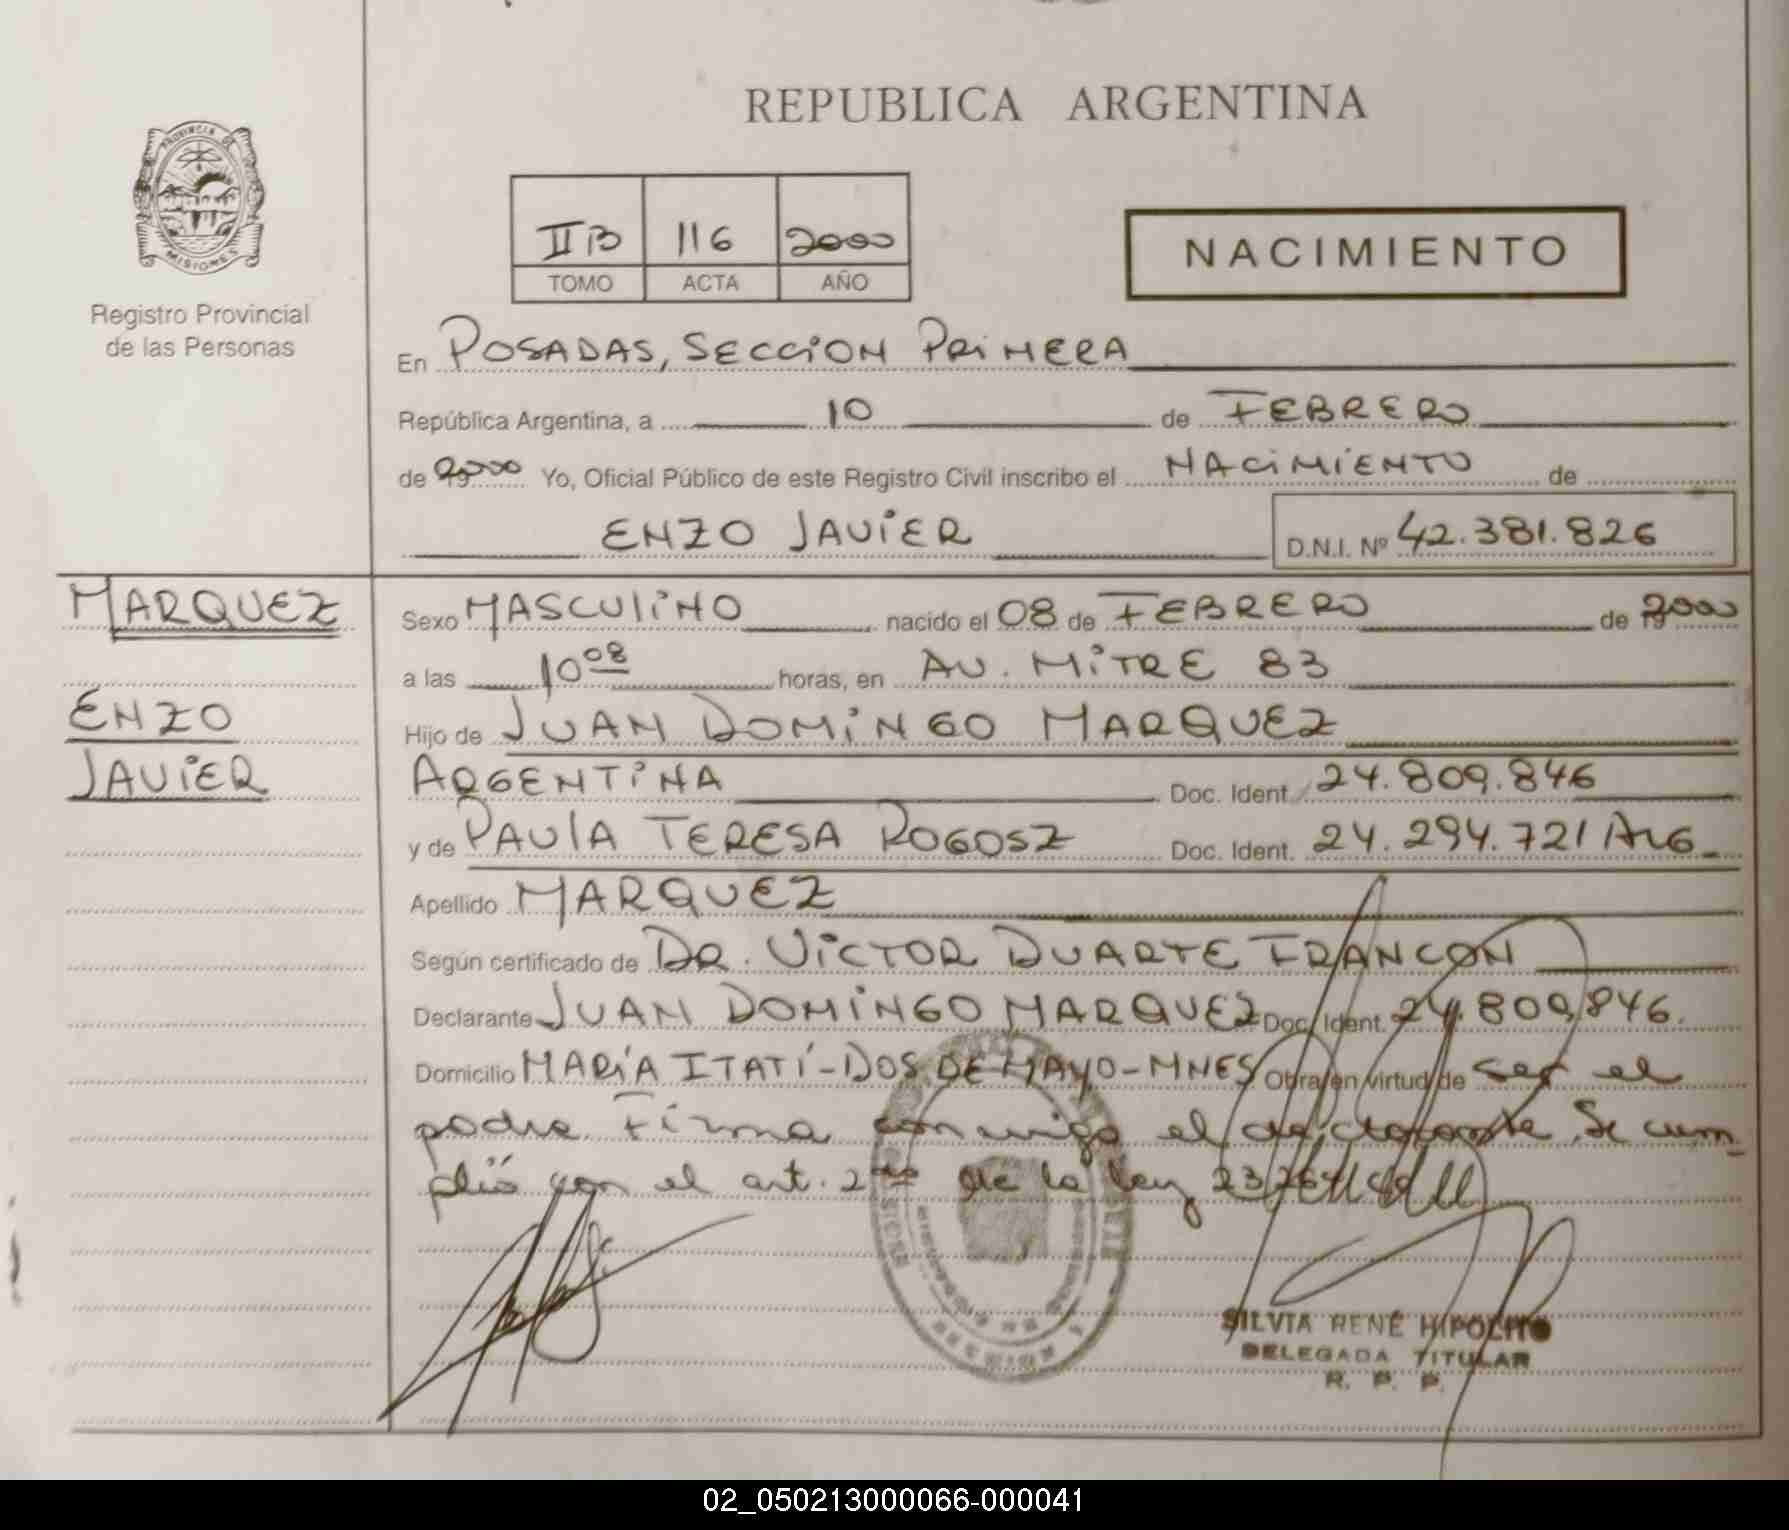 REPUBLICA ARGENTINA
PROVINCIA DE
MISIONES
Registro Provincial
de las Personas
II B 116 2000
TOMO ACTA AÑO
NACIMIENTO
En POSADAS, SECCION PRIMERA
República Argentina, a 10 de FEBRERO
de 2000 Yo, Oficial Público de este Registro Civil inscribo el NACIMIENTO de
ENZO JAVIER D.N.I. Nº 42.381.826
MARQUEZ
ENZO
JAVIER
Sexo MASCULINO nacido el 08 de FEBRERO de 2000
a las 10 08 horas, en AV. MITRE 83
Hijo de JUAN DOMINGO MARQUEZ
ARGENTINA Doc. Ident. 24.809.846
y de PAULA TERESA ROGOSZ Doc. Ident. 24.294.721 ARG
Apellido MARQUEZ
Según certificado de DR. VICTOR DUARTE FRANCON
Declarante JUAN DOMINGO MARQUEZ Doc. Ident. 24.809.846.
Domicilio MARÍA ITATÍ-DOS DE MAYO-MNES Obra en virtud de ser el
padre. Firma conmigo el declarante. Se cum
plió con el art. 2do de la ley 23.264
SILVIA RENÉ HIPOLITO
DELEGADA TITULAR
R. P. P.
02_050213000066-000041